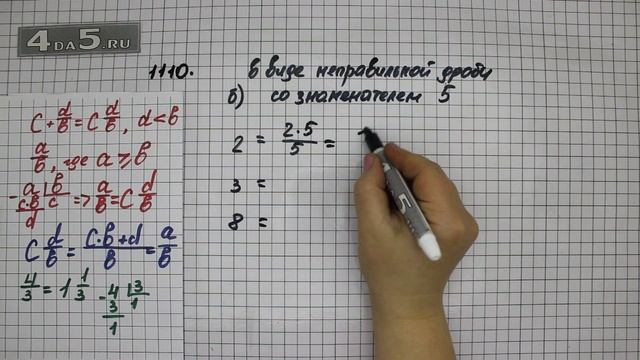 4DA5.RU
1110. в виде неправильной дроби
б) со знаменателем 5
2 = 2·5/5 =
3 =
8 =
c + d/b = c d/b, d < b
a/b, где a ≥ b
- a | b
c·b | c => a/b = c d/b
d
c d/b = c·b+d/b = a/b
4/3 = 1 1/3
- 4 | 3
3 | 1
1